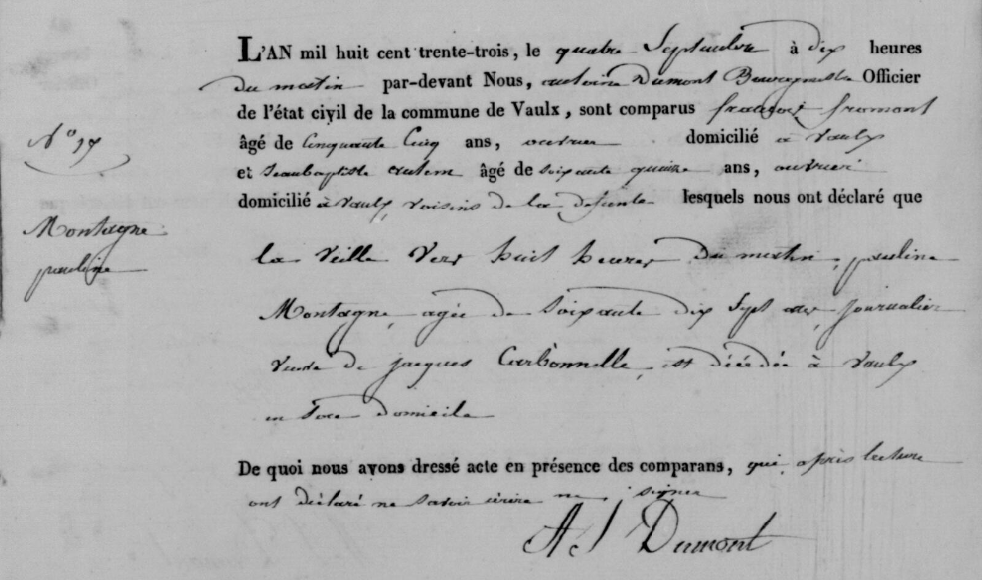 L'AN mil huit cent trente-trois, le quatre Septembre à dix heures
du matin par-devant Nous, antoine Dumont Bourgmestre Officier
de l'état civil de la commune de Vaulx, sont comparus françois fromont
âgé de Cinquante Cinq ans, ouvrier domicilié à Vaulx
et Jeanbaptiste autem âgé de soixante quinze ans, ouvrier
domicilié à Vaulx, voisins de la defunte lesquels nous ont déclaré que
la veille vers huit heures du matin, pauline
Montagne, agée de soixante dix sept ans, journalier
veuve de jacques Carbonnelle, est décédée à Vaulx
en son domicile
De quoi nous avons dressé acte en présence des comparans, qui après lecture
ont déclaré ne savoir écrire ni signer
A J Dumont
N° 17
Montagne
pauline